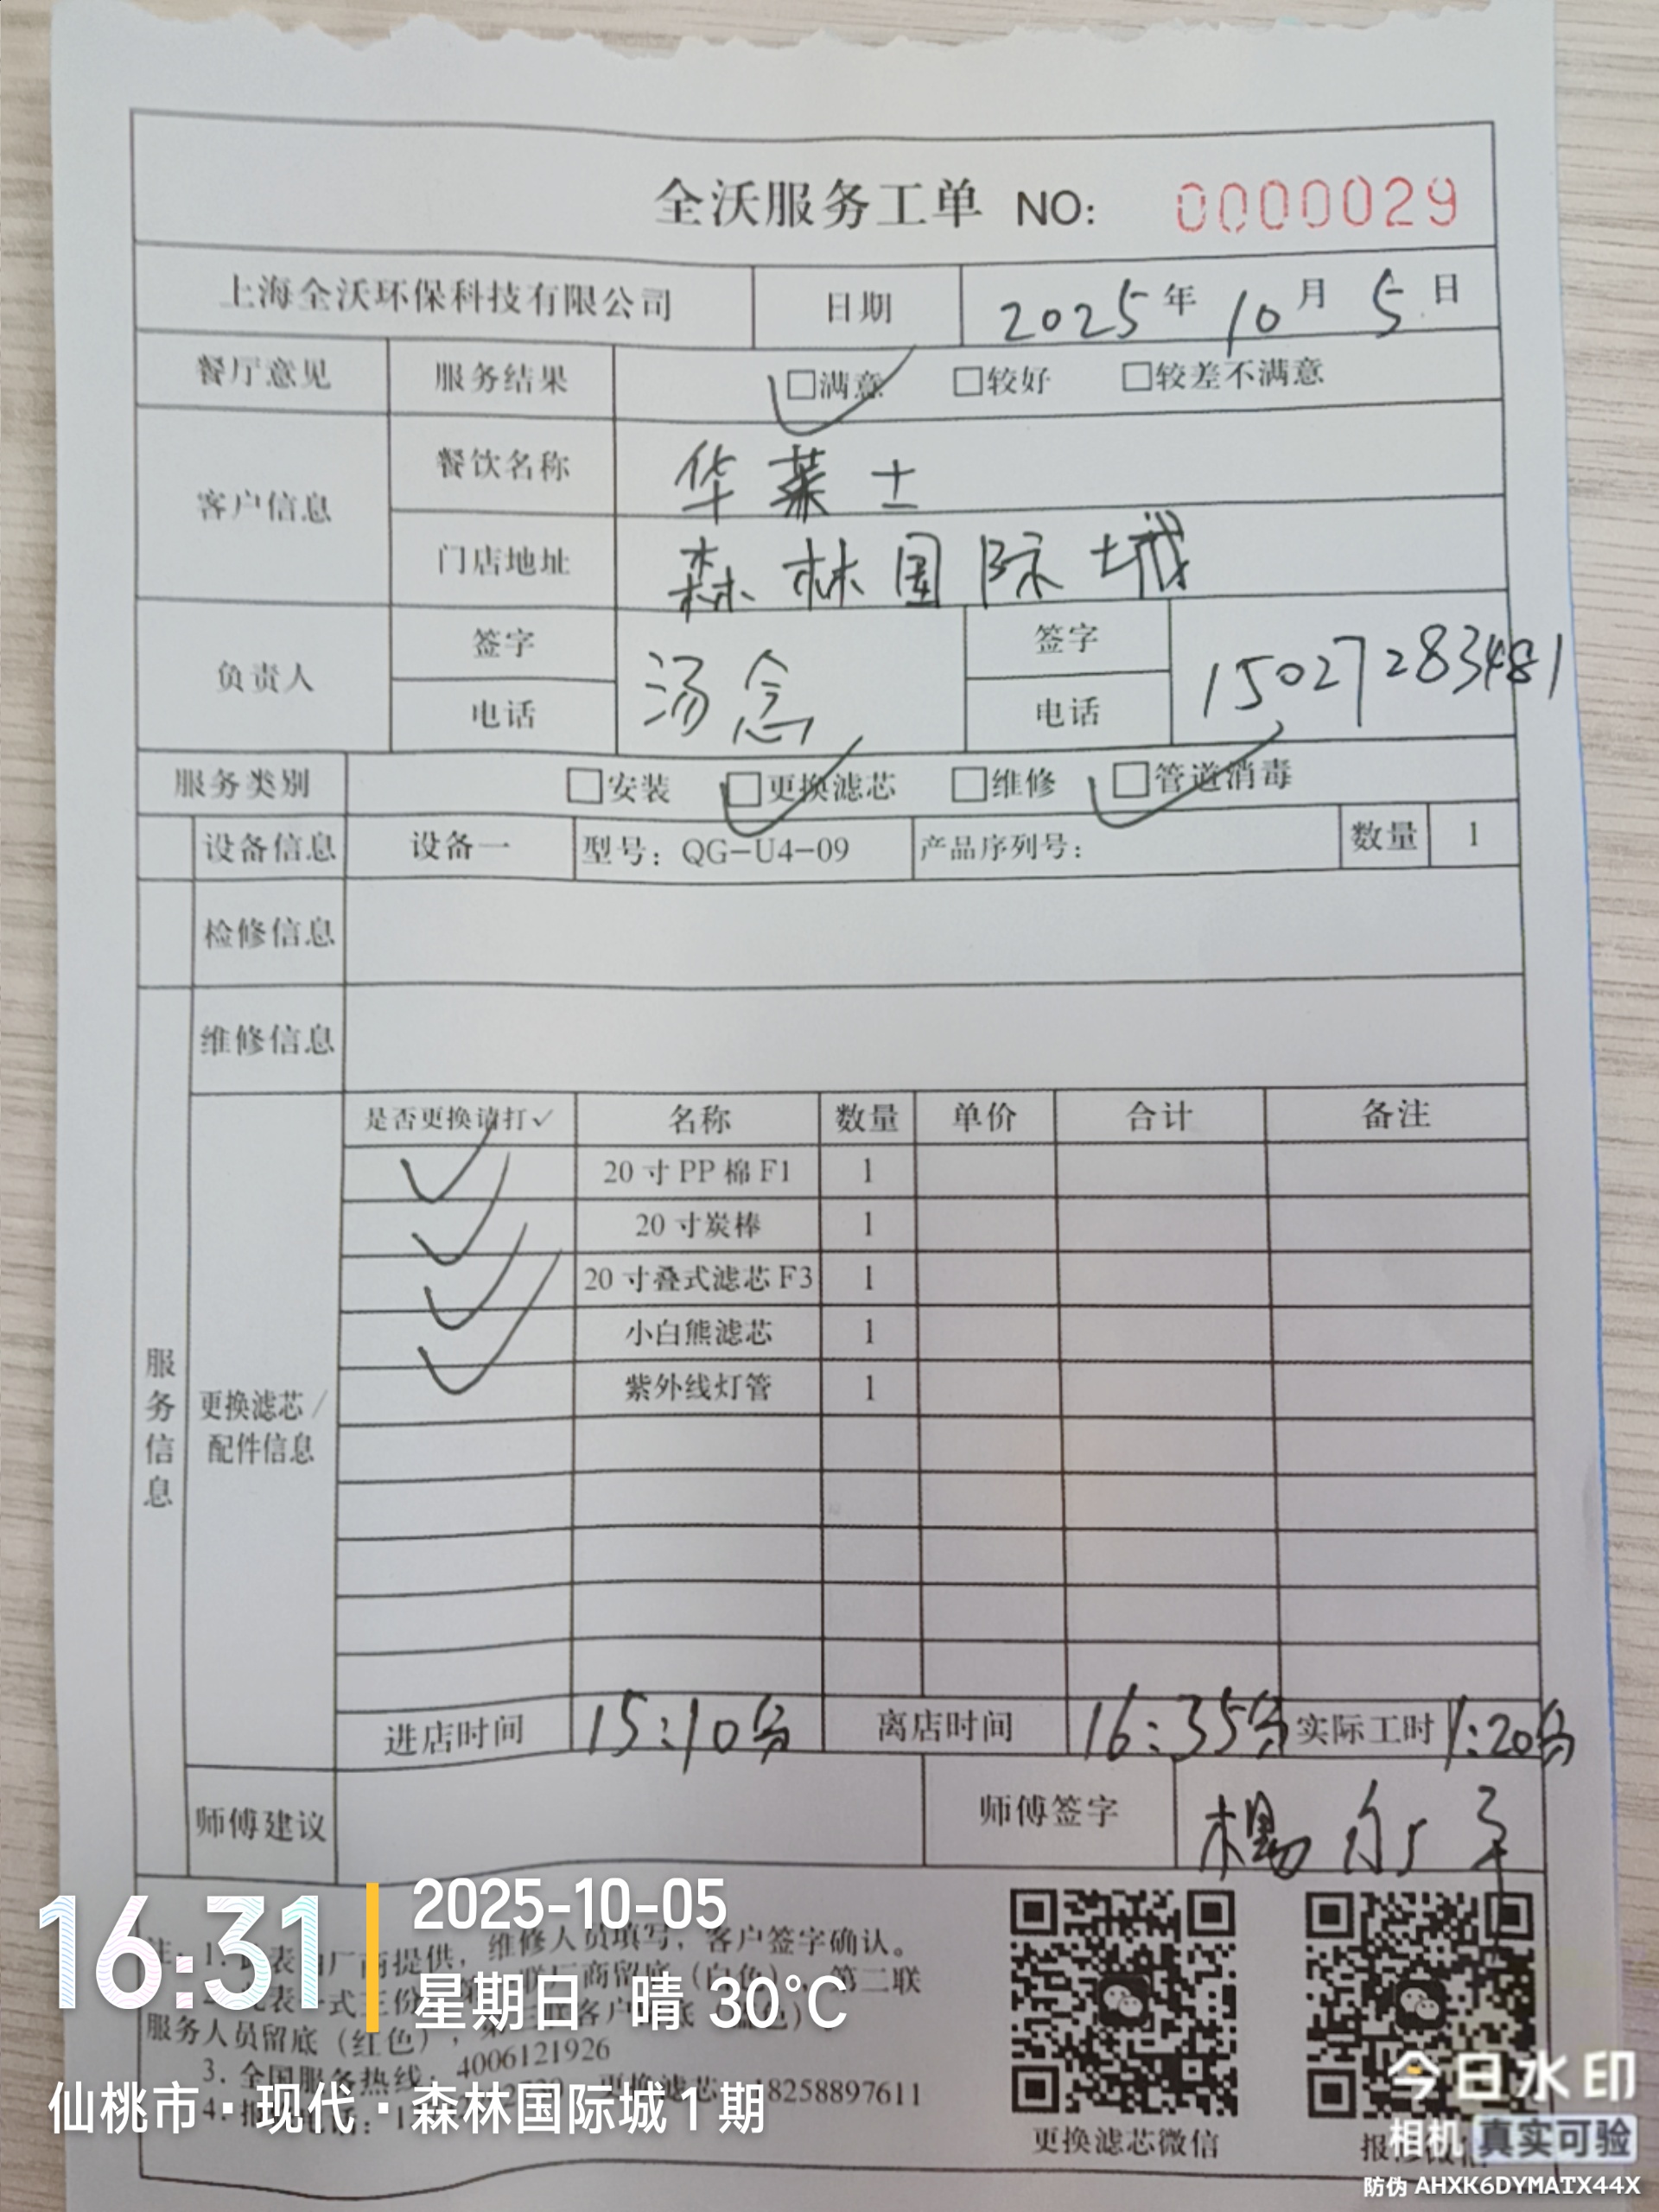 全沃服务工单 NO: 0000029
上海全沃环保科技有限公司 日期 2025年10月5日
餐厅意见 服务结果 □满意 □较好 □较差不满意
客户信息 餐饮名称 华莱士
门店地址 森林国际城
负责人 签字 电话 汤念 签字 电话 15027283481
服务类别 □安装 □更换滤芯 □维修 □管道消毒
设备信息 设备一 型号：QG-U4-09 产品序列号： 数量 1
检修信息
维修信息
服务信息
更换滤芯/配件信息
是否更换请打✓ 名称 数量 单价 合计 备注
✓ 20寸PP棉F1 1
✓ 20寸炭棒 1
✓ 20寸叠式滤芯F3 1
✓ 小白熊滤芯 1
紫外线灯管 1
进店时间 15:10分 离店时间 16:35分 实际工时 1:20分
师傅建议 师傅签字 杨
注：1. 表由厂商提供，维修人员填写，客户签字确认。
表 式三份 联厂商留底（白色），第二联
服务人员留底（红色）， 客户 底
3. 全国服务热线：4006121926
4. 电话：1 更换滤芯 18258897611
更换滤芯微信
报修微信
16:31
2025-10-05
星期日 晴 30°C
仙桃市·现代·森林国际城1期
今日水印
相机 真实可验
防伪 AHXK6DYMATX44X